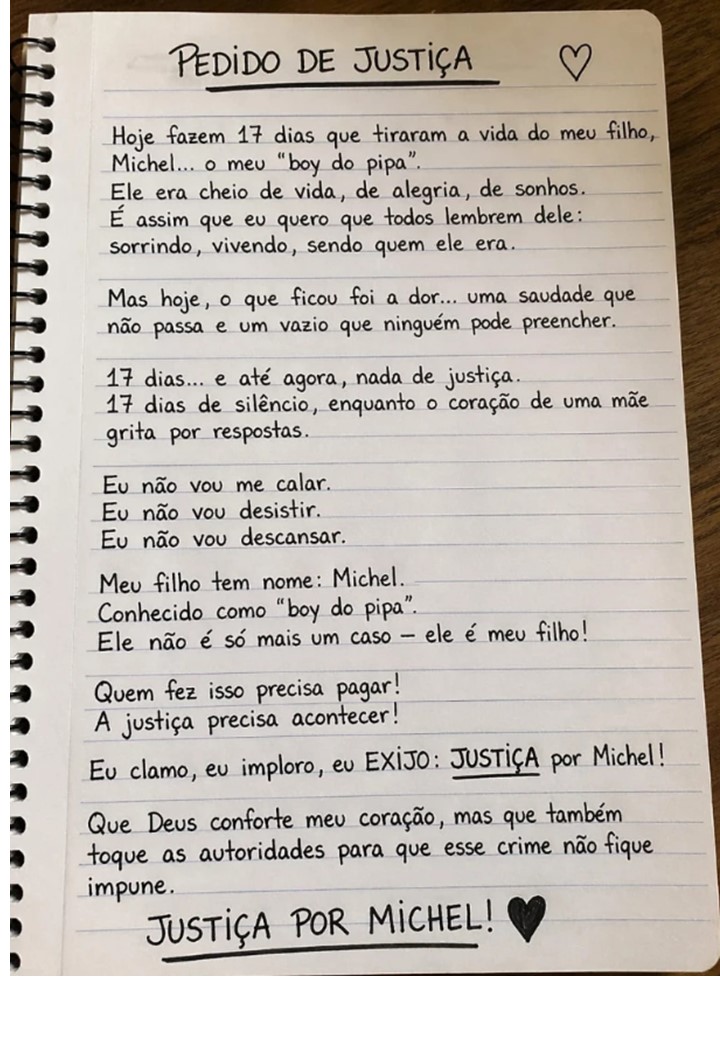 PEDIDO DE JUSTIÇA
Hoje fazem 17 dias que tiraram a vida do meu filho,
Michel... o meu "boy do pipa".
Ele era cheio de vida, de alegria, de sonhos.
É assim que eu quero que todos lembrem dele:
sorrindo, vivendo, sendo quem ele era.
Mas hoje, o que ficou foi a dor... uma saudade que
não passa e um vazio que ninguém pode preencher.
17 dias... e até agora, nada de justiça.
17 dias de silêncio, enquanto o coração de uma mãe
grita por respostas.
Eu não vou me calar.
Eu não vou desistir.
Eu não vou descansar.
Meu filho tem nome: Michel.
Conhecido como "boy do pipa".
Ele não é só mais um caso – ele é meu filho!
Quem fez isso precisa pagar!
A justiça precisa acontecer!
Eu clamo, eu imploro, eu EXIJO: JUSTIÇA por Michel!
Que Deus conforte meu coração, mas que também
toque as autoridades para que esse crime não fique
impune.
JUSTIÇA POR MICHEL!